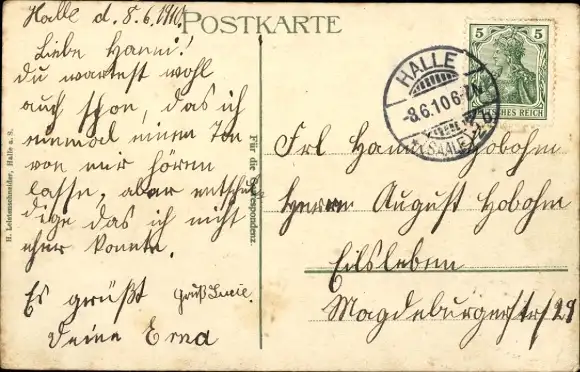 Halle d. 8.6.1910.
POSTKARTE
Liebe Hanni!
Du wartest wohl
auch schon, das ich
einmal einen Ton
von mir hören
lasse, aber entschul
dige das ich nicht
eher konnte.
Es grüßt
Gruß Lucie.
Deine Erna
H. Leistenschneider, Halle a. S.
Für die Correspondenz
5 5
DEUTSCHES REICH
HALLE
-8.6.10 6-7N
(SAALE)
Frl Hanni Hobohm
Herrn August Hobohm
Eilsleben
Magdeburgerstr 29